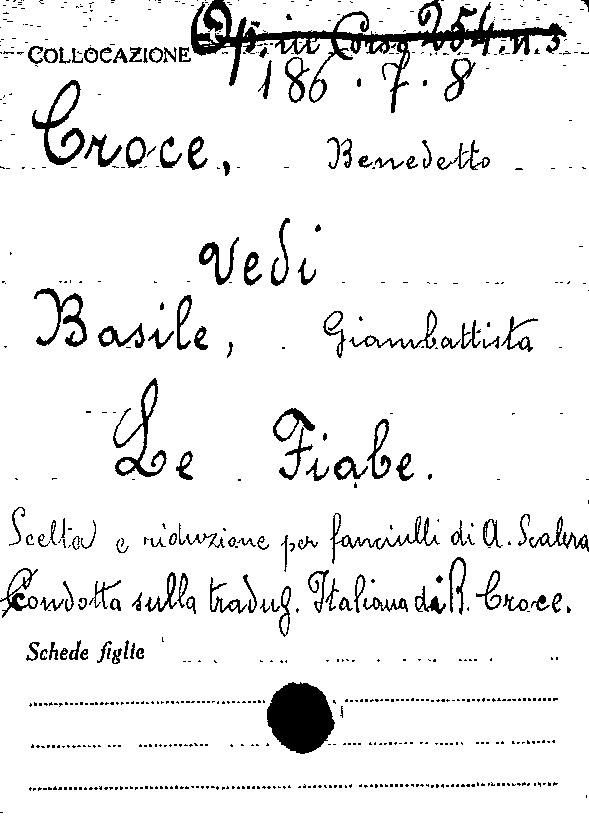 COLLOCAZIONE Op. in Corso 254. n. 3
186 . 7 . 8
Croce, Benedetto
Vedi
Basile, Giambattista
Le Fiabe.
Scelta e riduzione per fanciulli di A. Scalera
Condotta sulla traduz. Italiana di B. Croce.
Schede figlie